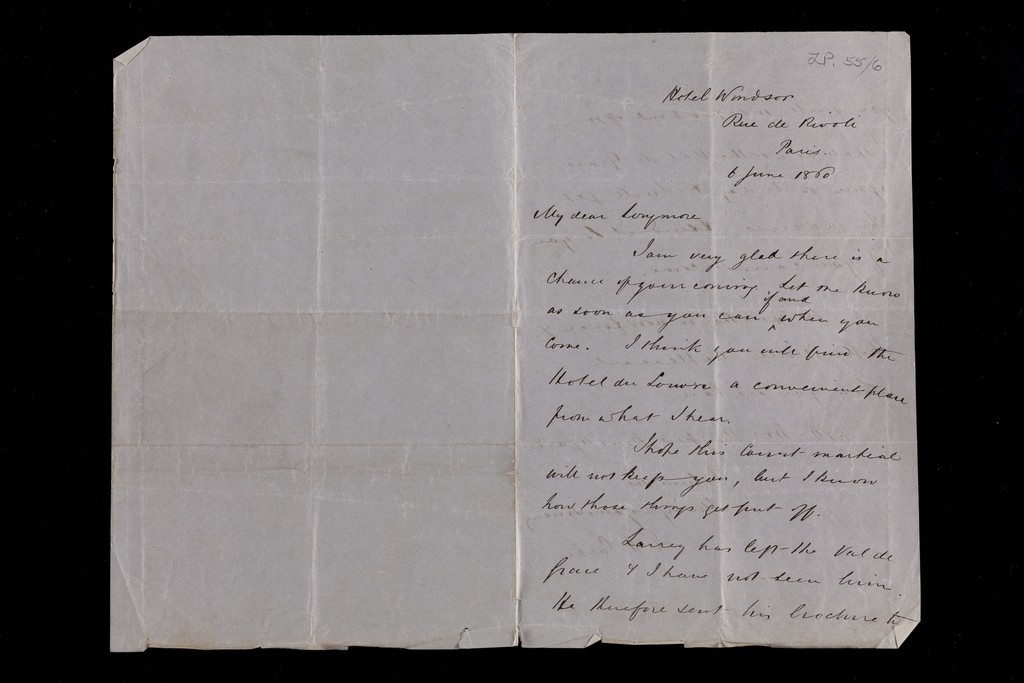 LP. 55/6
Hotel Windsor
Rue de Rivoli
Paris.
6 June 1860
My dear Longmore
I am very glad there is a
chance of your coming. Let me know
as soon as you can if and when you
come. I think you will find the
Hotel du Louvre a convenient place
from what I hear.
I hope this Court martial
will not keep you, but I know
how those things get put off.
Larrey has left the Val de
Grace & I have not seen him.
He therefore sent his brochure to